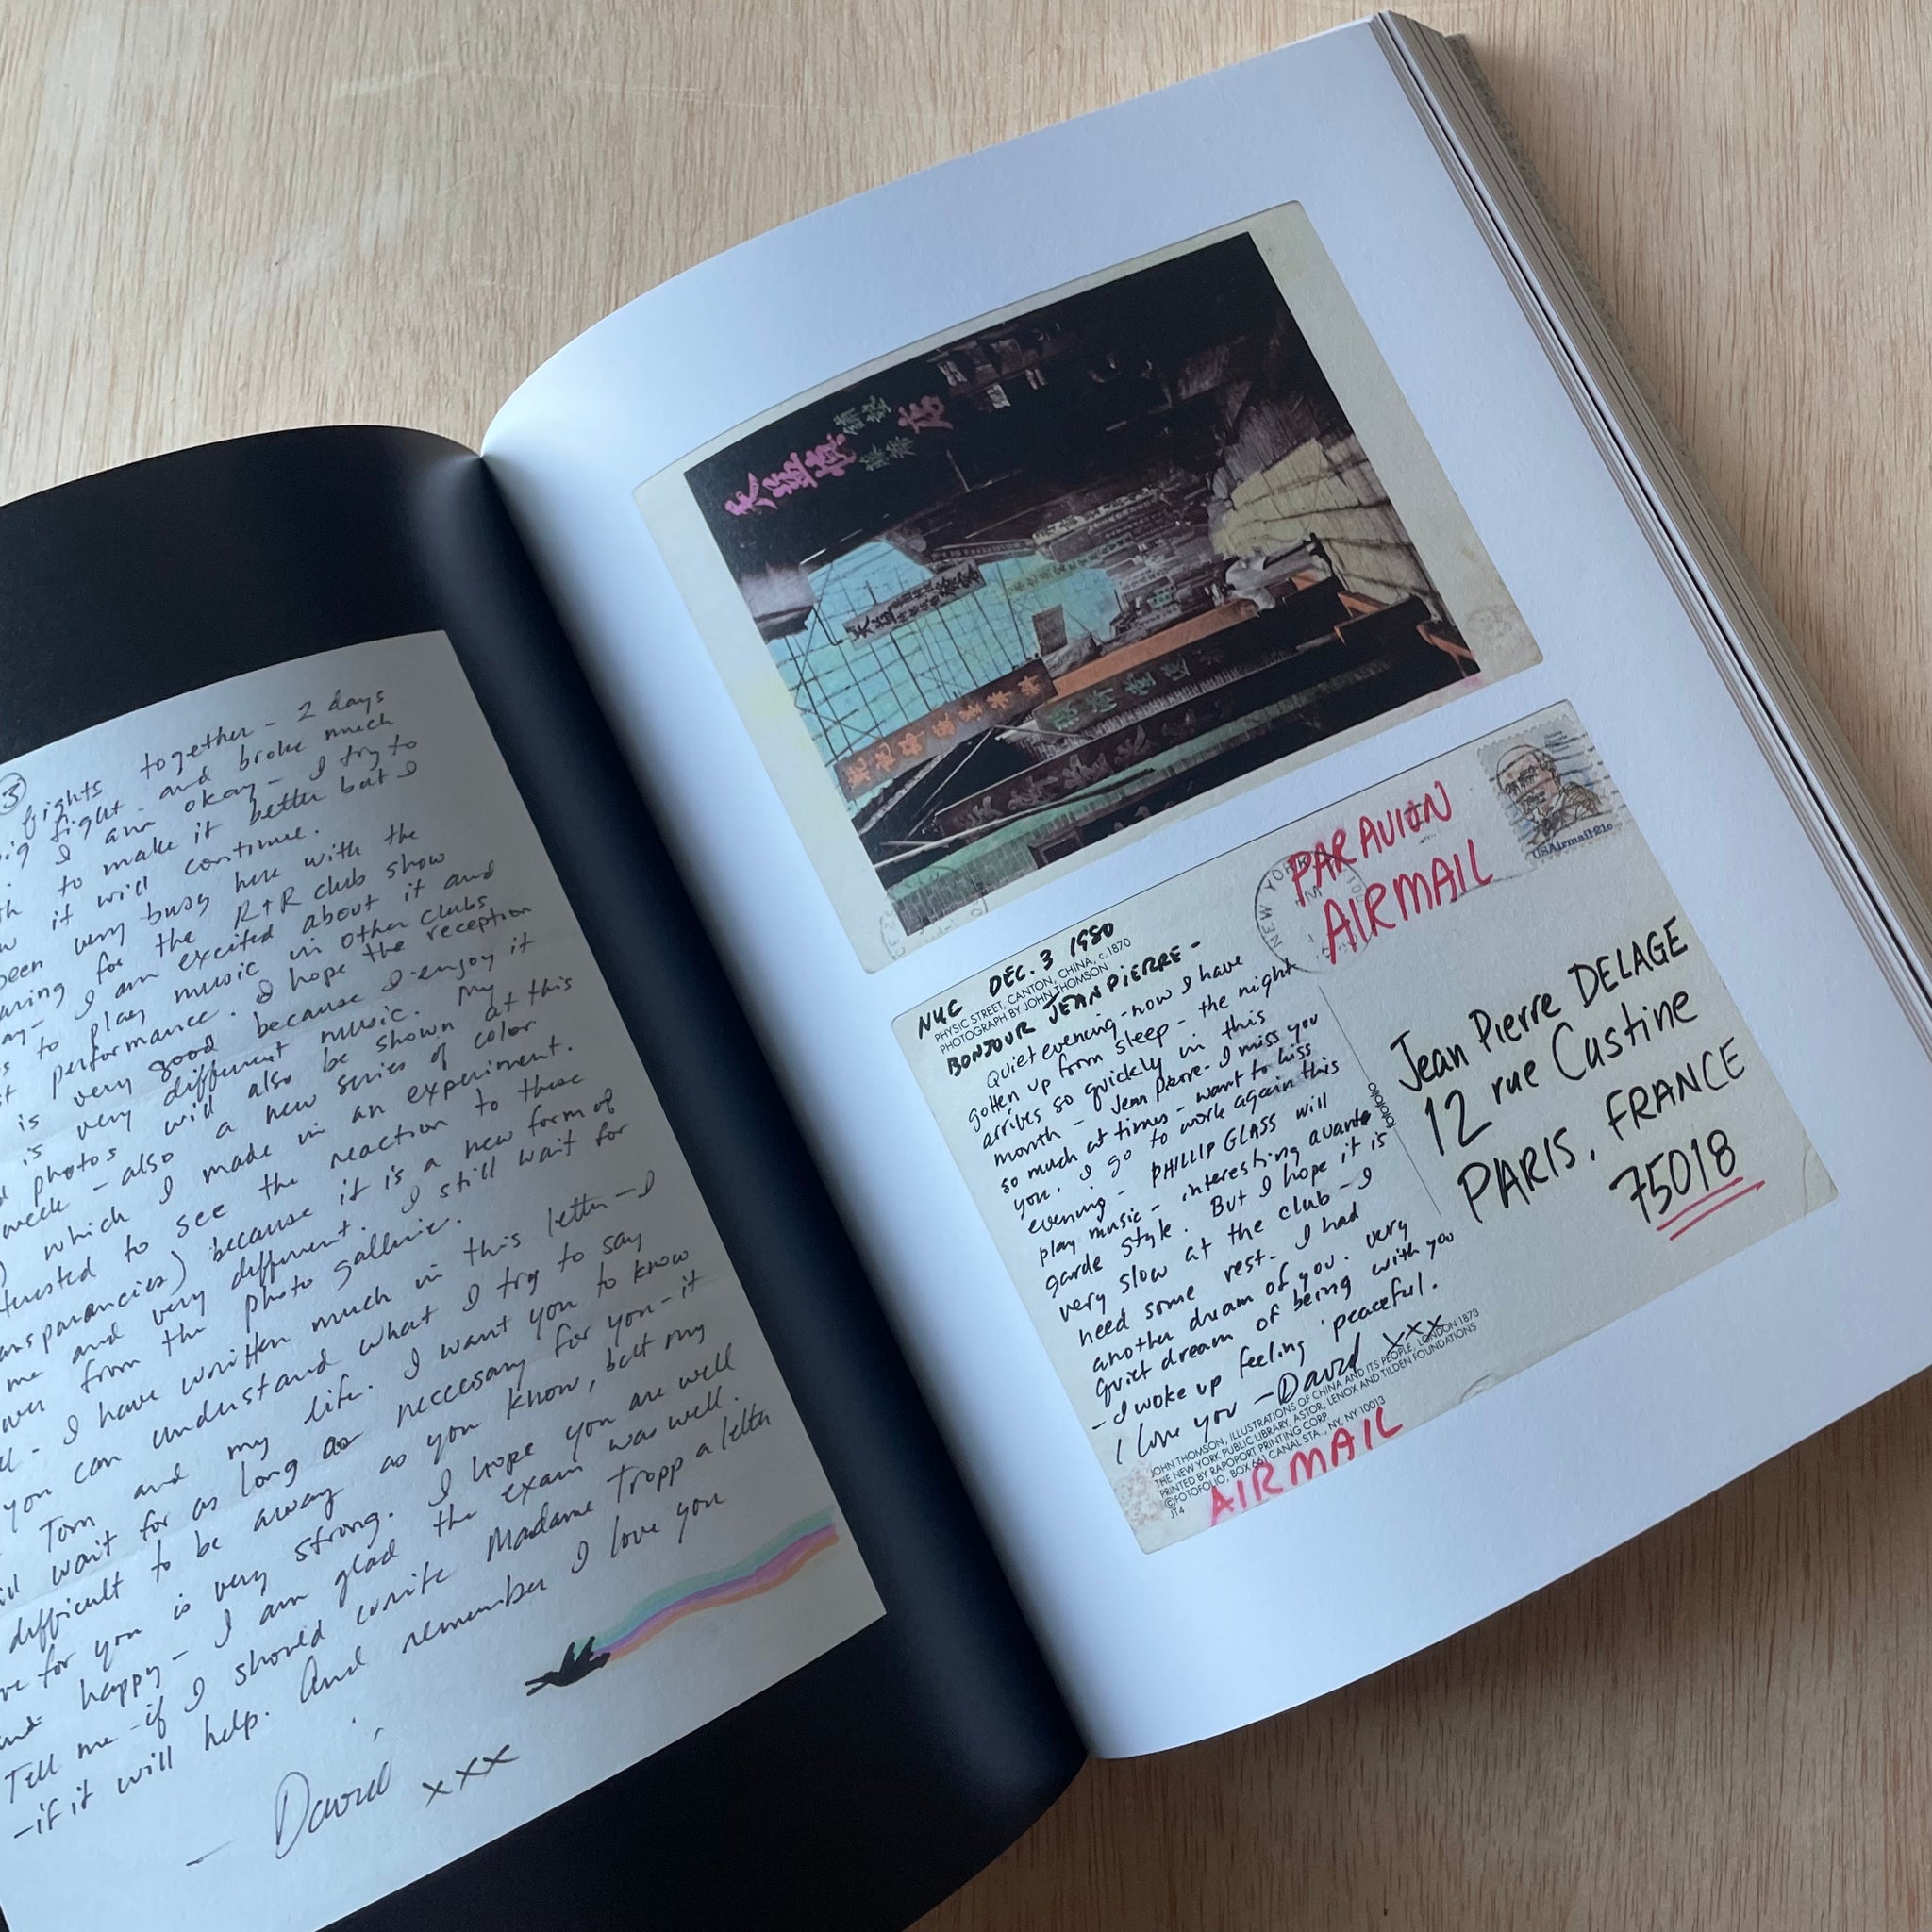 ③
fights together - 2 days
big fight - and broke much
I am okay - I try to
to make it better but I
it will continue.
been very busy here with the
for the R+R club show
I am excited about it and
to play music in other clubs
performance. I hope the reception
is very good because I enjoy it
is very different music. My
photos will also be shown at this
week - also a new series of color
which I made in an experiment.
to see the reaction to these
because it is a new form of
me and very different. I still wait for
from the photo gallerie.
I have written much in this letter - I
you can understand what I try to say
Tom and my life. I want you to know
wait for as long as neccesary for you - it
difficult to be away as you know, but my
for you is very strong. I hope you are well
happy - I am glad the exam was well.
Tell me if I should write Madame Tropp a letter
- if it will help. And remember I love you
- David xxx
NYC DEC. 3 1980
PHYSIC STREET, CANTON, CHINA, c.1870
PHOTOGRAPH BY JOHN THOMSON
BONJOUR JEAN PIERRE -
Quiet evening - now I have
gotten up from sleep - the night
arrives so quickly in this
month - Jean Pierre - I miss you
so much at times - want to kiss
you. I go to work again this
evening - PHILLIP GLASS will
play music - interesting avante
garde style. But I hope it is
very slow at the club - I
need some rest. I had
another dream of you. very
quiet dream of being with you
- I woke up feeling peaceful.
I love you - David xxx
JOHN THOMSON, ILLUSTRATIONS OF CHINA AND ITS PEOPLE, LONDON 1873
THE NEW YORK PUBLIC LIBRARY, ASTOR, LENOX AND TILDEN FOUNDATIONS
PRINTED BY RAPOPORT PRINTING CORP.
©FOTOFOLIO, BOX 661 CANAL STA., NY, NY 10013
JT4
AIRMAIL
fotofolio
NEW YORK
PAR AVION
AIRMAIL
USAirmail 21c
Jean Pierre DELAGE
12 rue Custine
PARIS, FRANCE
75018